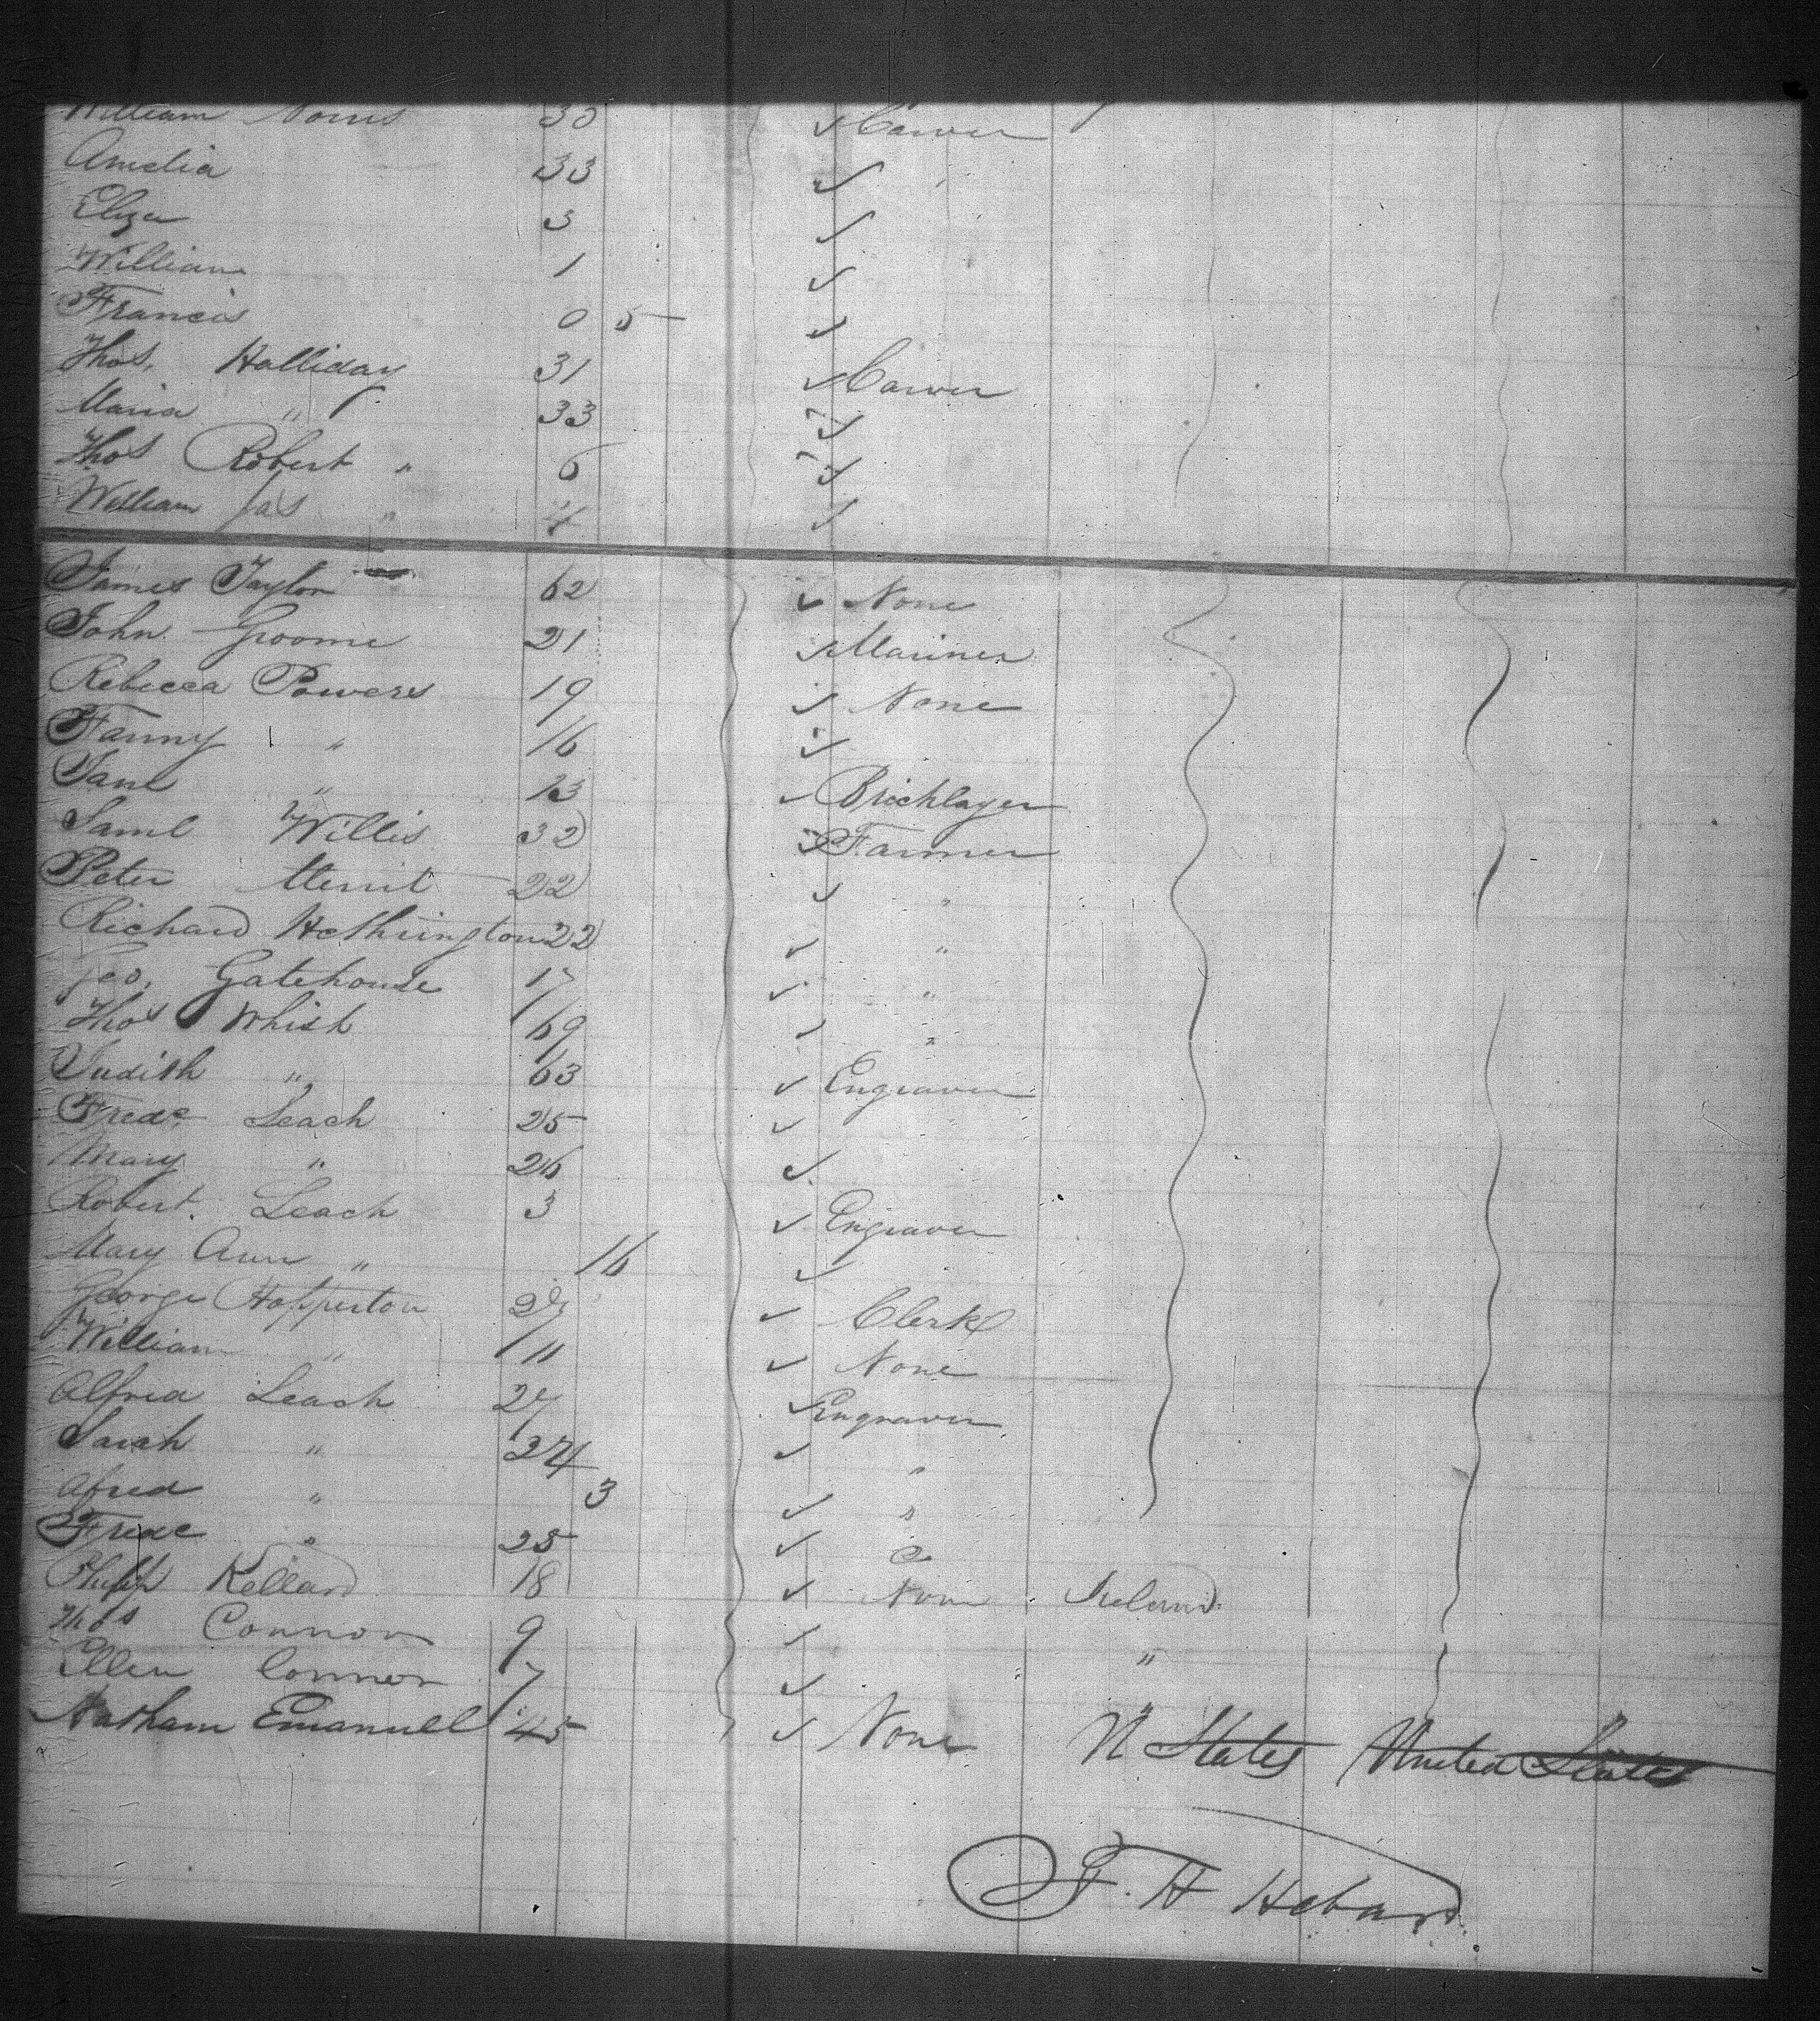 William Norris 30 Carver
Amelia 33
Eliza 3
William 1
Francis 0 5
Thos. Halliday 31 Carver
Maria " 33
Thos Robert " 6
William Jas " 4
James Taylor 62 None
John Groome 21 Mariner
Rebecca Powers 19 None
Fanny " 16
Saml " 13 Bricklayer
Saml Willis 32 Farmer
Peter Merrit 22 "
Richard Hethrington 22 "
Geo. Gatehouse 17 "
Thos Whish 69 "
Judith " 63 Engraver
Fredc Leach 25
Mary " 26
Robert. Leach 3 Engraver
Mary Ann " 16
George Hopperton Clerk
William " 11 None
Alfred Leach 27 Engraver
Sarah " 24
Afred " 3 "
Fredc " 25
Philip Kellard 18 None Ireland
Thos Connor 9 "
Ellen Connor 7 "
Natham Emanuel 45 None U States United States
F. H Hebard